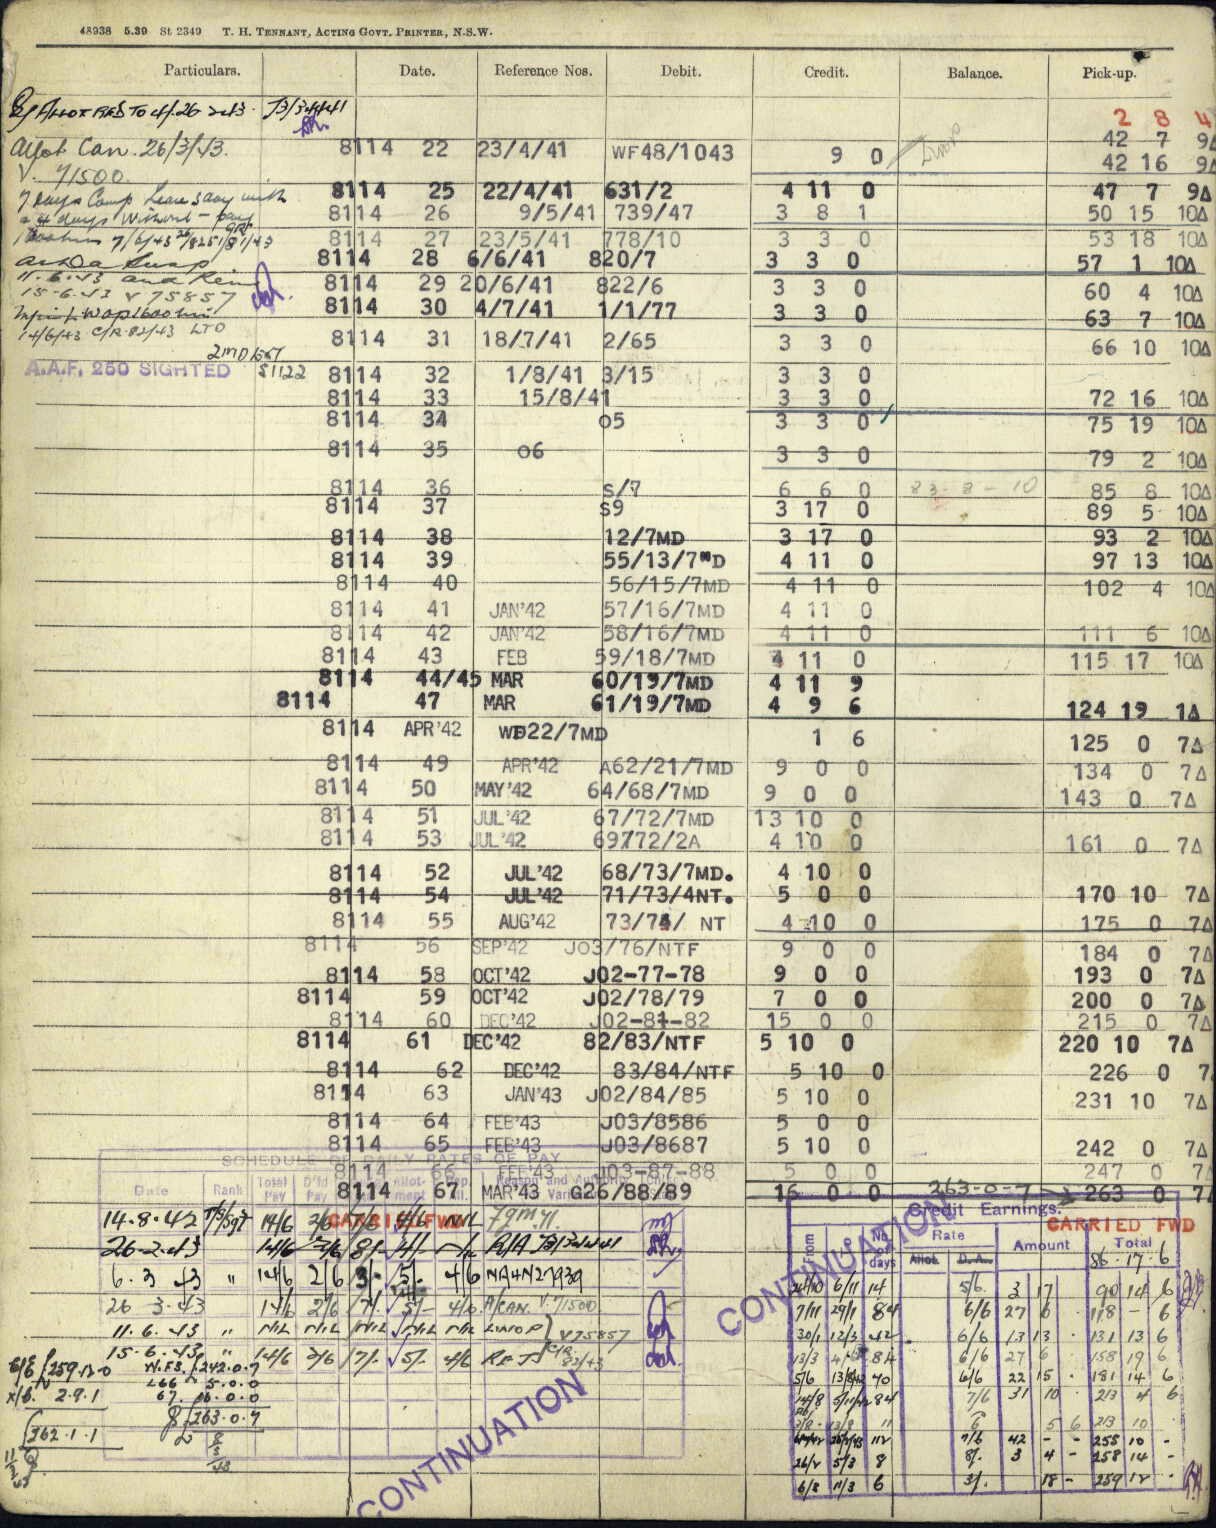 48938 5.39 St 2349 T. H. TENNANT, ACTING GOVT. PRINTER, N.S.W.
Particulars. Date. Reference Nos. Debit. Credit. Balance. Pick-up.
2 8 4
42 7 9Δ
Allot Can. 26/3/43. 8114 22 23/4/41 WF48/1043 9 0 42 16 9Δ
V. 71500.
7 days Comp Leave 3 day with 8114 25 22/4/41 631/2 4 11 0 47 7 9Δ
4 days without pay 8114 26 9/5/41 739/47 3 8 1 50 15 10Δ
8114 27 23/5/41 778/10 3 3 0 53 18 10Δ
8114 28 6/6/41 820/7 3 3 0 57 1 10Δ
11.6.43 and 8114 29 20/6/41 822/6 3 3 0 60 4 10Δ
15-6-43 V 75857 8114 30 4/7/41 1/1/77 3 3 0 63 7 10Δ
14/6/43 C/R 82/43 LTO 8114 31 18/7/41 2/65 3 3 0 66 10 10Δ
A.A.F. 250 SIGHTED S1122 8114 32 1/8/41 3/15 3 3 0
8114 33 15/8/41 3 3 0 72 16 10Δ
8114 34 05 3 3 0 75 19 10Δ
8114 35 06 3 3 0 79 2 10Δ
8114 36 S/7 6 6 0 83-8-10 85 8 10Δ
8114 37 S9 3 17 0 89 5 10Δ
8114 38 12/7MD 3 17 0 93 2 10Δ
8114 39 55/13/7MD 4 11 0 97 13 10Δ
8114 40 56/15/7MD 4 11 0 102 4 10Δ
8114 41 JAN'42 57/16/7MD 4 11 0
8114 42 JAN'42 58/16/7MD 4 11 0 111 6 10Δ
8114 43 FEB 59/18/7MD 4 11 0 115 17 10Δ
8114 44/45 MAR 60/19/7MD 4 11 9
8114 47 MAR 61/19/7MD 4 9 6 124 19 1Δ
8114 APR'42 WD22/7MD 1 6 125 0 7Δ
8114 49 APR'42 A62/21/7MD 9 0 0 134 0 7Δ
8114 50 MAY'42 64/68/7MD 9 0 0 143 0 7Δ
8114 51 JUL'42 67/72/7MD 13 10 0
8114 53 JUL'42 69/72/2A 4 10 0 161 0 7Δ
8114 52 JUL'42 68/73/7MD. 4 10 0
8114 54 JUL'42 71/73/4NT. 5 0 0 170 10 7Δ
8114 55 AUG'42 73/74/ NT 4 10 0 175 0 7Δ
8114 56 SEP'42 J03/76/NTF 9 0 0 184 0 7Δ
8114 58 OCT'42 J02-77-78 9 0 0 193 0 7Δ
8114 59 OCT'42 J02/78/79 7 0 0 200 0 7Δ
8114 60 DEC'42 J02-81-82 15 0 0 215 0 7Δ
8114 61 DEC'42 82/83/NTF 5 10 0 220 10 7Δ
8114 62 DEC'42 83/84/NTF 5 10 0 226 0 7
8114 63 JAN'43 J02/84/85 5 10 0 231 10 7Δ
8114 64 FEB'43 J03/8586 5 0 0
8114 65 FEB'43 J03/8687 5 10 0 242 0 7Δ
SCHEDULE OF DAILY RATES OF PAY
8114 66 FEB'43 J03-87-88 5 0 0 247 0 7
8114 67 MAR'43 G26/88/89 16 0 0 263-0-7 263 0 7
Date Rank Total Pay D'fd Pay Allotment Reason and Authority
CARRIED FWD
14.8.42 14/6 2/6 7/6
26-2-43 14/6 8/- 4/- R/A J3/34441
6.3 43 " 14/6 2/6 3/- 5/- 4/6 NA4N27939
26 3-43 14/6 2/6 7/- 5/- 4/6 A/CAN. V.71500.
11.6.43 " NIL NIL NIL NIL NIL LWOP V75857
15.6.43 " 14/6 2/6 7/- 5/- 4/6 C/R 82/43
259.12.0 242.0.7
266 5.0.0
2.9.1 67. 16.0.0
263.0.7
262.1.1
CONTINUATION
CONTINUATION
Credit Earnings.
CARRIED FWD
From To No. of days Rate Amount Total
Allot. D.A.
86.17.6
24/10 6/11 14 5/6 3 17 90 14 6
7/11 29/1 84 6/6 27 6 118 - 6
30/1 12/3 42 6/6 13 13 131 13 6
13/3 84 6/6 27 6 158 19 6
5/6 13/8/42 70 6/6 22 15 181 14 6
14/8 5/11/42 84 7/6 31 10 213 4 6
11 6 5 6 213 10
112 7/6 42 - - 255 10 -
26/2 5/3 8 8/- 3 4 - 258 14 -
6/3 11/3 6 3/- 18 - 259 12 -